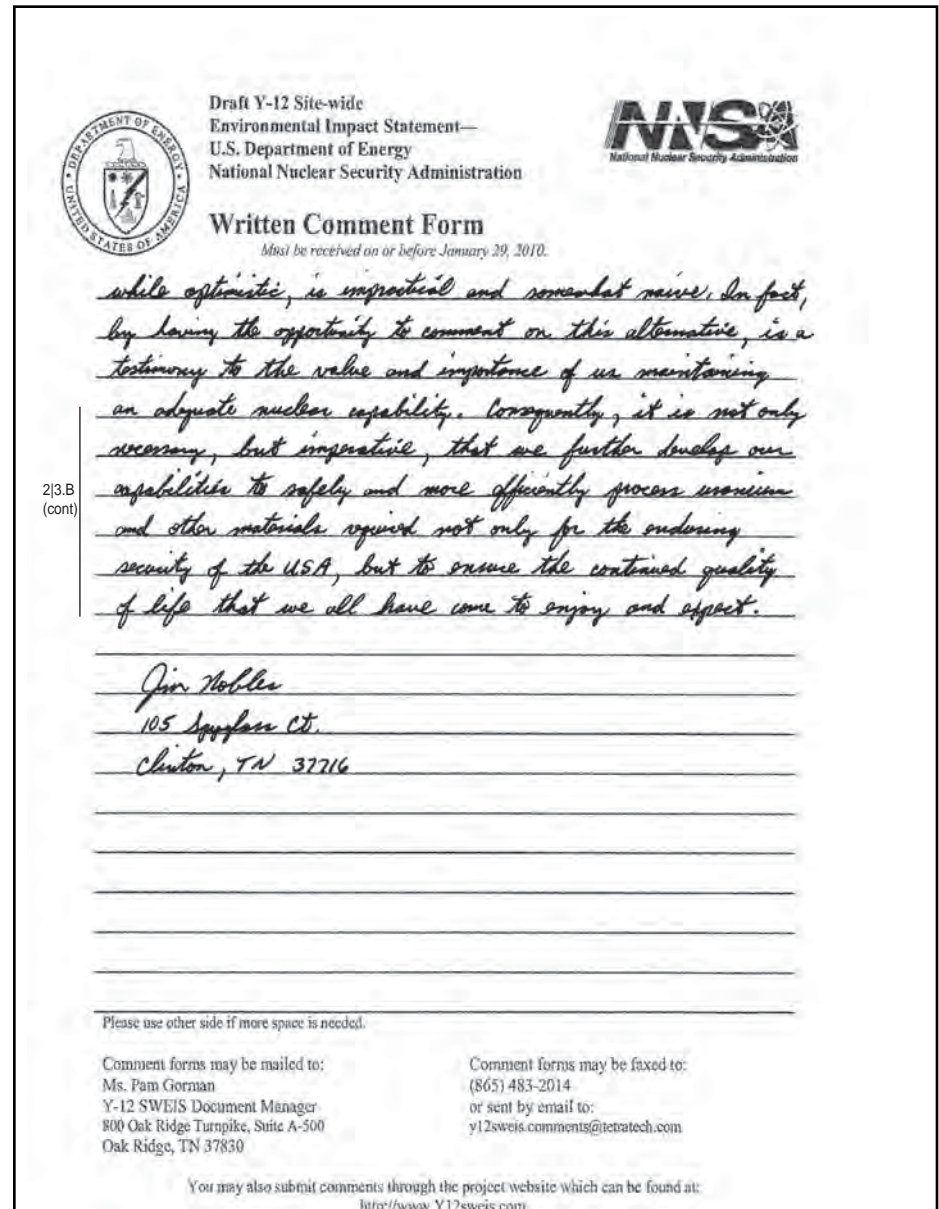 Draft Y-12 Site-wide
Environmental Impact Statement—
U.S. Department of Energy
National Nuclear Security Administration
DEPARTMENT OF ENERGY
UNITED STATES OF AMERICA
NNSA
National Nuclear Security Administration
Written Comment Form
Must be received on or before January 29, 2010.
while optimistic, is impractical and somewhat naive. In fact,
by having the opportunity to comment on this alternative, is a
testimony to the value and importance of us maintaining
an adequate nuclear capability. Consequently, it is not only
necessary, but imperative, that we further develop our
capabilities to safely and more efficiently process uranium
and other materials required not only for the enduring
security of the USA, but to ensure the continued quality
of life that we all have come to enjoy and expect.
2|3.B
(cont)
Jim Nobles
105 Spyglass Ct.
Clinton, TN 37716
Please use other side if more space is needed.
Comment forms may be mailed to:
Ms. Pam Gorman
Y-12 SWEIS Document Manager
800 Oak Ridge Turnpike, Suite A-500
Oak Ridge, TN 37830
Comment forms may be faxed to:
(865) 483-2014
or sent by email to:
y12sweis.comments@tetratech.com
You may also submit comments through the project website which can be found at:
http://www.Y12sweis.com